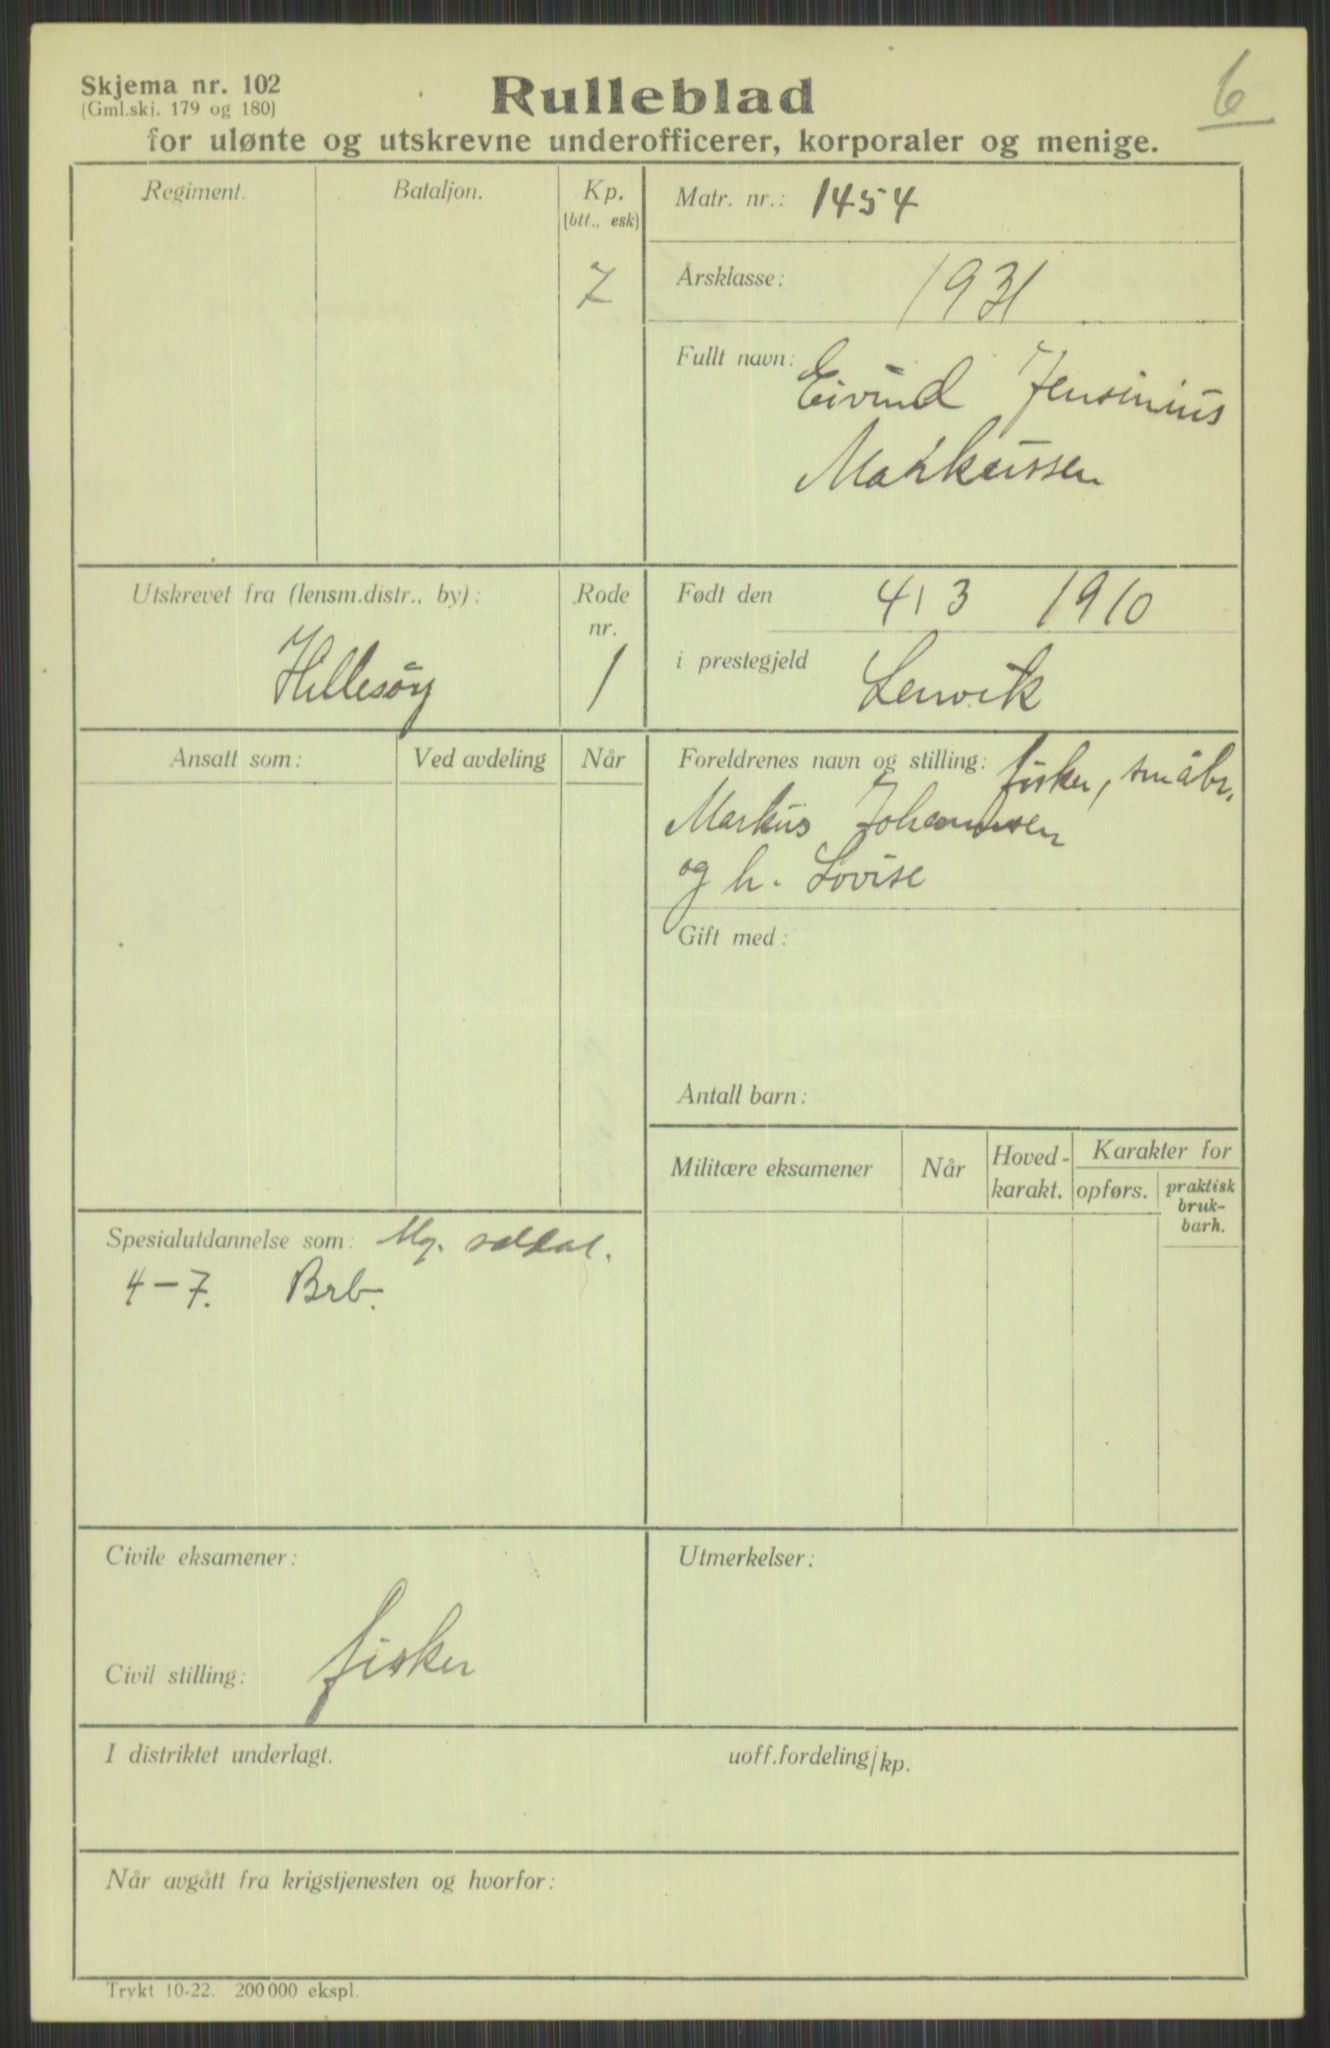 6
Skjema nr. 102
(Gml.skj. 179 og 180)
Rulleblad
for ulønte og utskrevne underofficerer, korporaler og menige.
Regiment.
Bataljon.
Kp.
(btt., esk)
7
Matr. nr.: 1454
Årsklasse: 1931
Fullt navn: Eivind Jensinius
Markussen
Utskrevet fra (lensm.distr., by):
Hillesöy
Rode
nr.
1
Født den 4/3 1910
i prestegjeld Lenvik
Ansatt som:
Ved avdeling
Når
Foreldrenes navn og stilling: fisker, småbr.
Markus Johannesen
og h. Lovise
Gift med:
Antall barn:
Militære eksamener
Når
Hoved-
karakt.
Karakter for
opførs.
praktisk
bruk-
barh.
Spesialutdannelse som: Mg. soldat.
4-7. Brb.
Civile eksamener:
Civil stilling: fisker
Utmerkelser:
I distriktet underlagt.
uoff.fordeling/kp.
Når avgått fra krigstjenesten og hvorfor:
Trykt 10-22. 200000 ekspl.